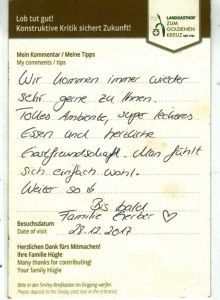 Lob tut gut!
Konstruktive Kritik sichert Zukunft!
LANDGASTHOF
ZUM
GOLDENEN
KREUZ
Mein Kommentar / Meine Tipps
My comments / tips
Wir kommen immer wieder
sehr gerne zu Ihnen.
Tolles Ambiente, super leckeres
Essen und herzliche
Gastfreundschaft. Man fühlt
sich einfach wohl.
Weiter so
Bis bald
Familie Gerber
Besuchsdatum
Date of visit
28.12.2017
Herzlichen Dank fürs Mitmachen!
Ihre Familie Hügle
Many thanks for contributing!
Your family Hügle
Bitte in den Smiley-Briefkasten im Eingang werfen.
Please deposit in the Smiley post box in the entrance.